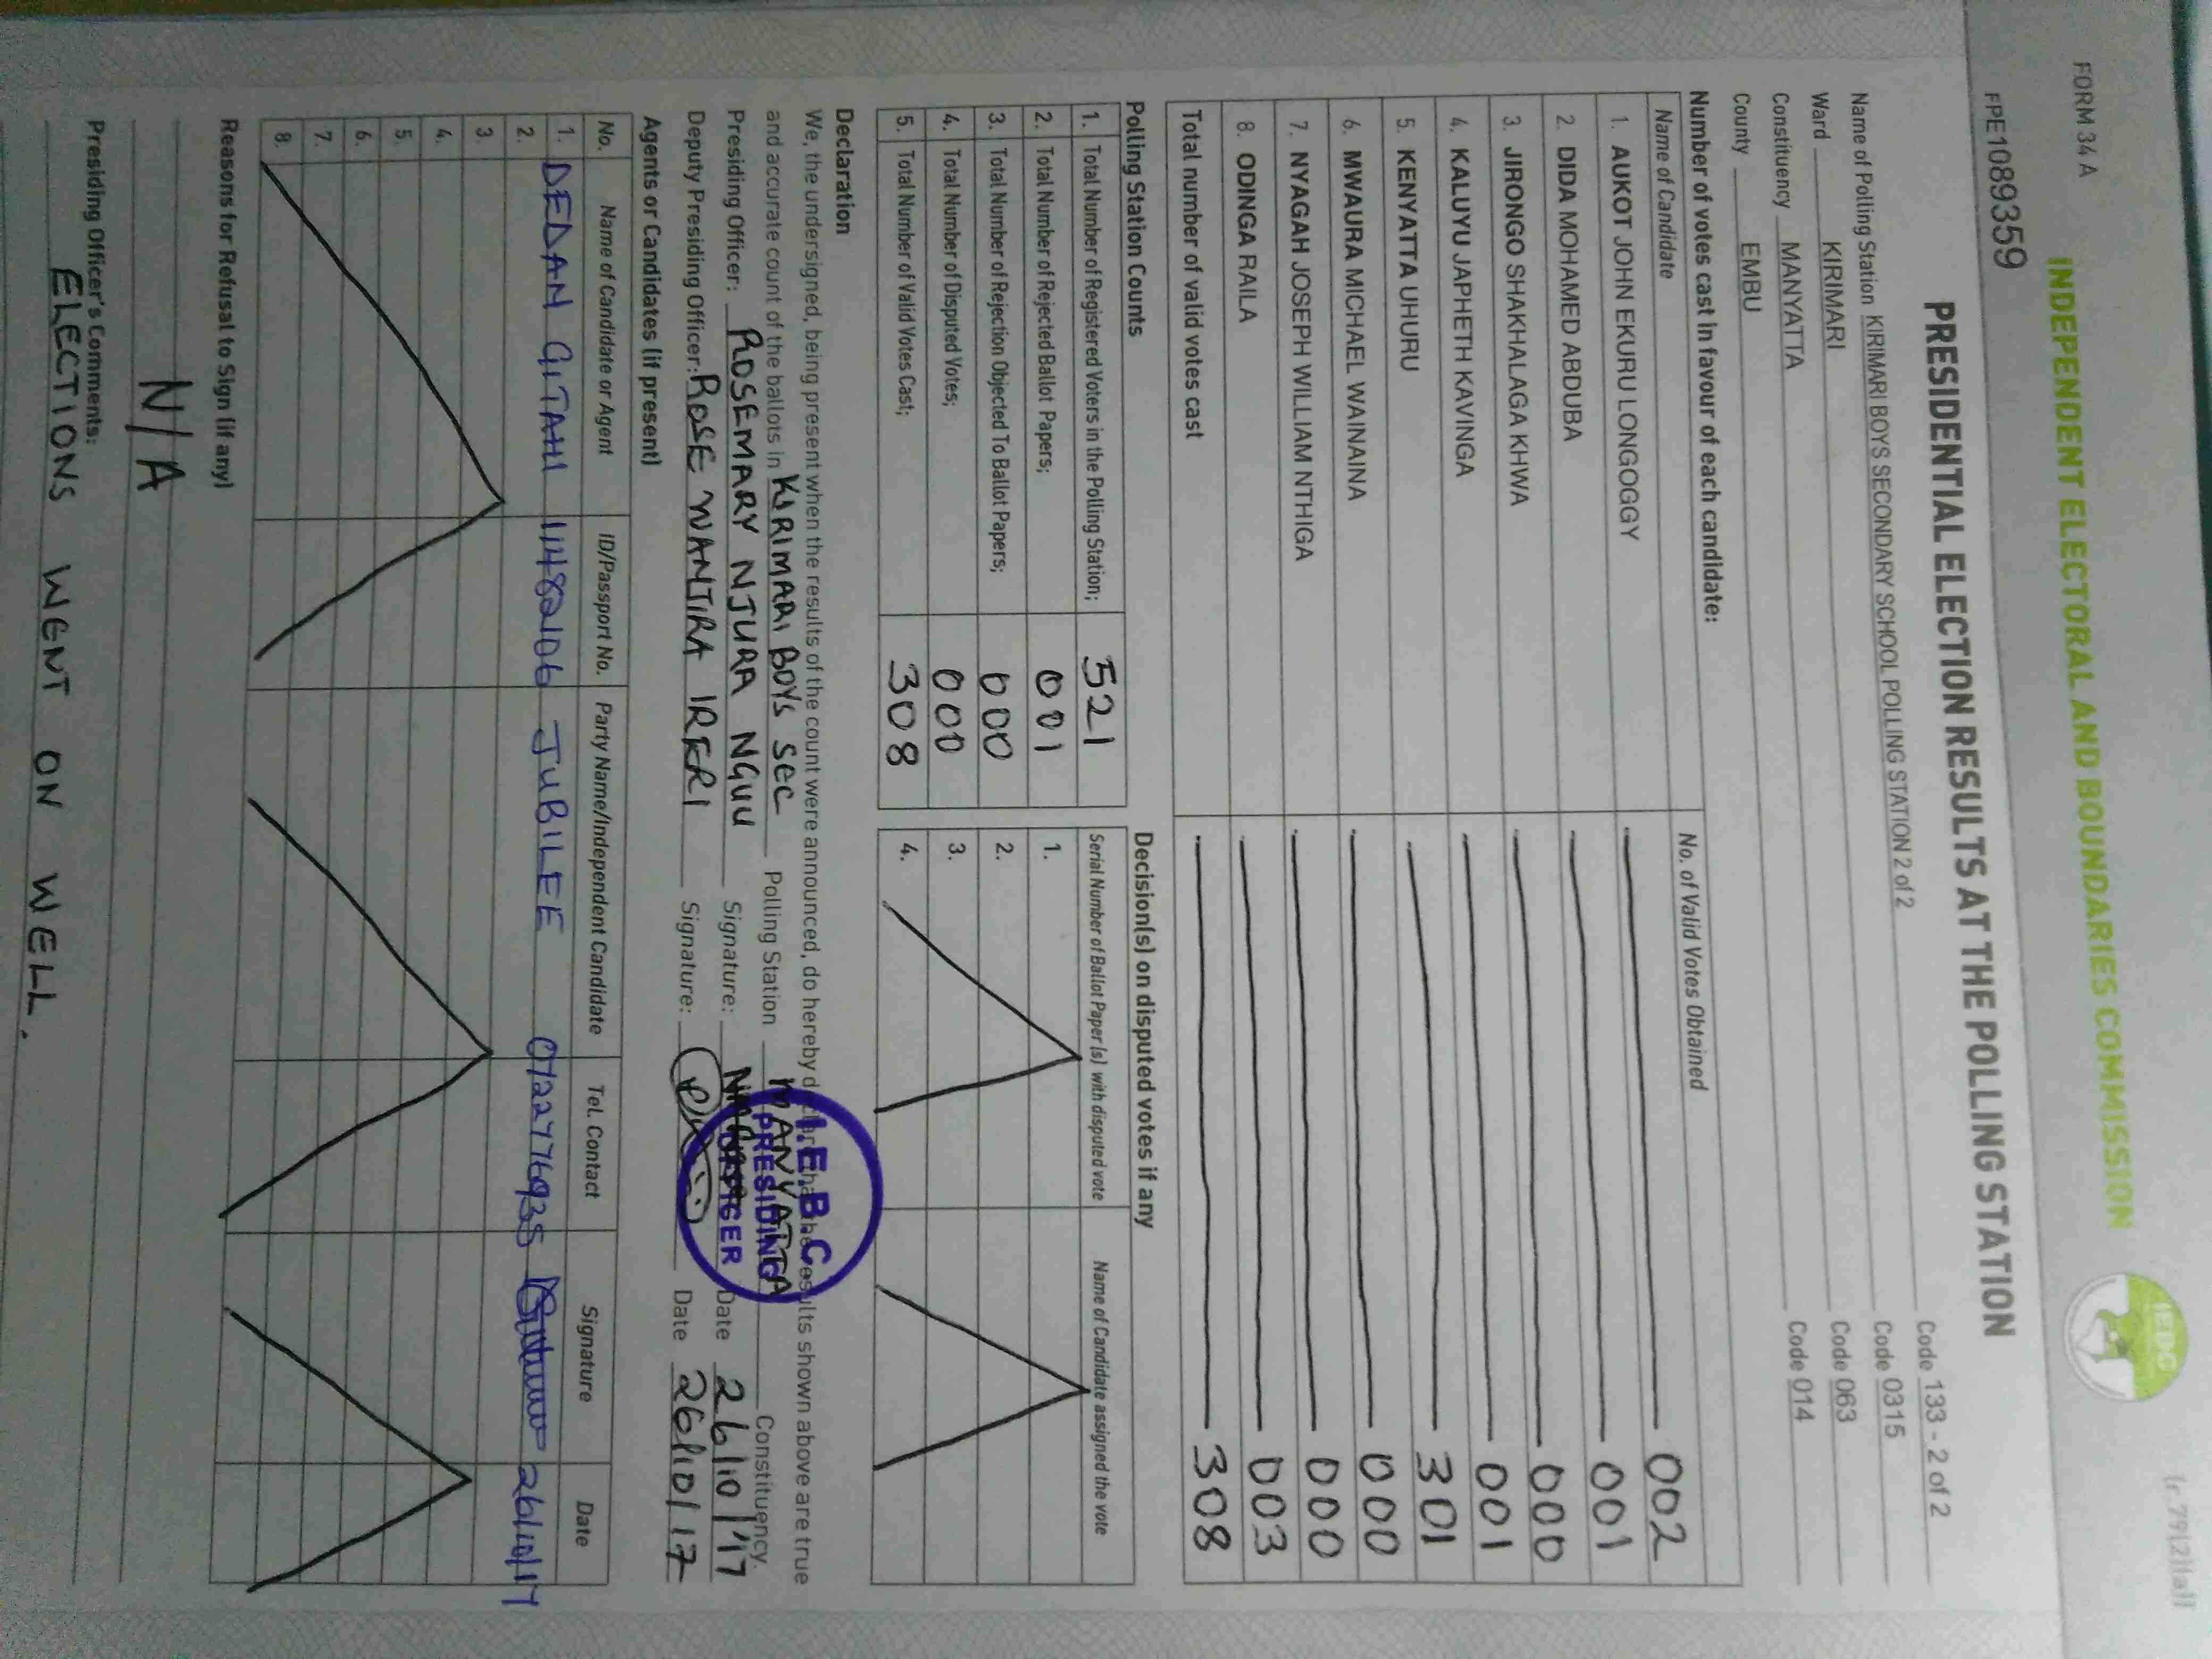 (r. 79(2)(a))
FORM 34 A
INDEPENDENT ELECTORAL AND BOUNDARIES COMMISSION
IEBC
FPE1089359
PRESIDENTIAL ELECTION RESULTS AT THE POLLING STATION
Name of Polling Station KIRIMARI BOYS SECONDARY SCHOOL POLLING STATION 2 of 2 Code 133 - 2 of 2
Ward KIRIMARI Code 0315
Constituency MANYATTA Code 063
County EMBU Code 014
Number of votes cast in favour of each candidate:
Name of Candidate No. of Valid Votes Obtained
1. AUKOT JOHN EKURU LONGOGGY 002
2. DIDA MOHAMED ABDUBA 001
3. JIRONGO SHAKHALAGA KHWA 000
4. KALUYU JAPHETH KAVINGA 001
5. KENYATTA UHURU 301
6. MWAURA MICHAEL WAINAINA 000
7. NYAGAH JOSEPH WILLIAM NTHIGA 000
8. ODINGA RAILA 003
Total number of valid votes cast 308
Polling Station Counts Decision(s) on disputed votes if any
1. Total Number of Registered Voters in the Polling Station; 521 Serial Number of Ballot Paper(s) with disputed vote Name of Candidate assigned the vote
2. Total Number of Rejected Ballot Papers; 001 1.
3. Total Number of Rejection Objected To Ballot Papers; 000 2.
4. Total Number of Disputed Votes; 000 3.
5. Total Number of Valid Votes Cast; 308 4.
Declaration
We, the undersigned, being present when the results of the count were announced, do hereby declare that the results shown above are true
and accurate count of the ballots in KIRIMARI BOYS SEC Polling Station MANYATTA Constituency.
Presiding Officer: ROSEMARY NJURA NGUU Signature: Date 26/10/'17
Deputy Presiding Officer: ROSE WANTIRA IRERI Signature: Date 26/10/17
I.E.B.C
PRESIDING
OFFICER
Agents or Candidates (if present)
No. Name of Candidate or Agent ID/Passport No. Party Name/Independent Candidate Tel. Contact Signature Date
1. DEDAN GITAHI 11482106 JUBILEE 0722776935 26/10/17
2.
3.
4.
5.
6.
7.
8.
Reasons for Refusal to Sign (if any)
N/A
Presiding Officer's Comments:
ELECTIONS WENT ON WELL.